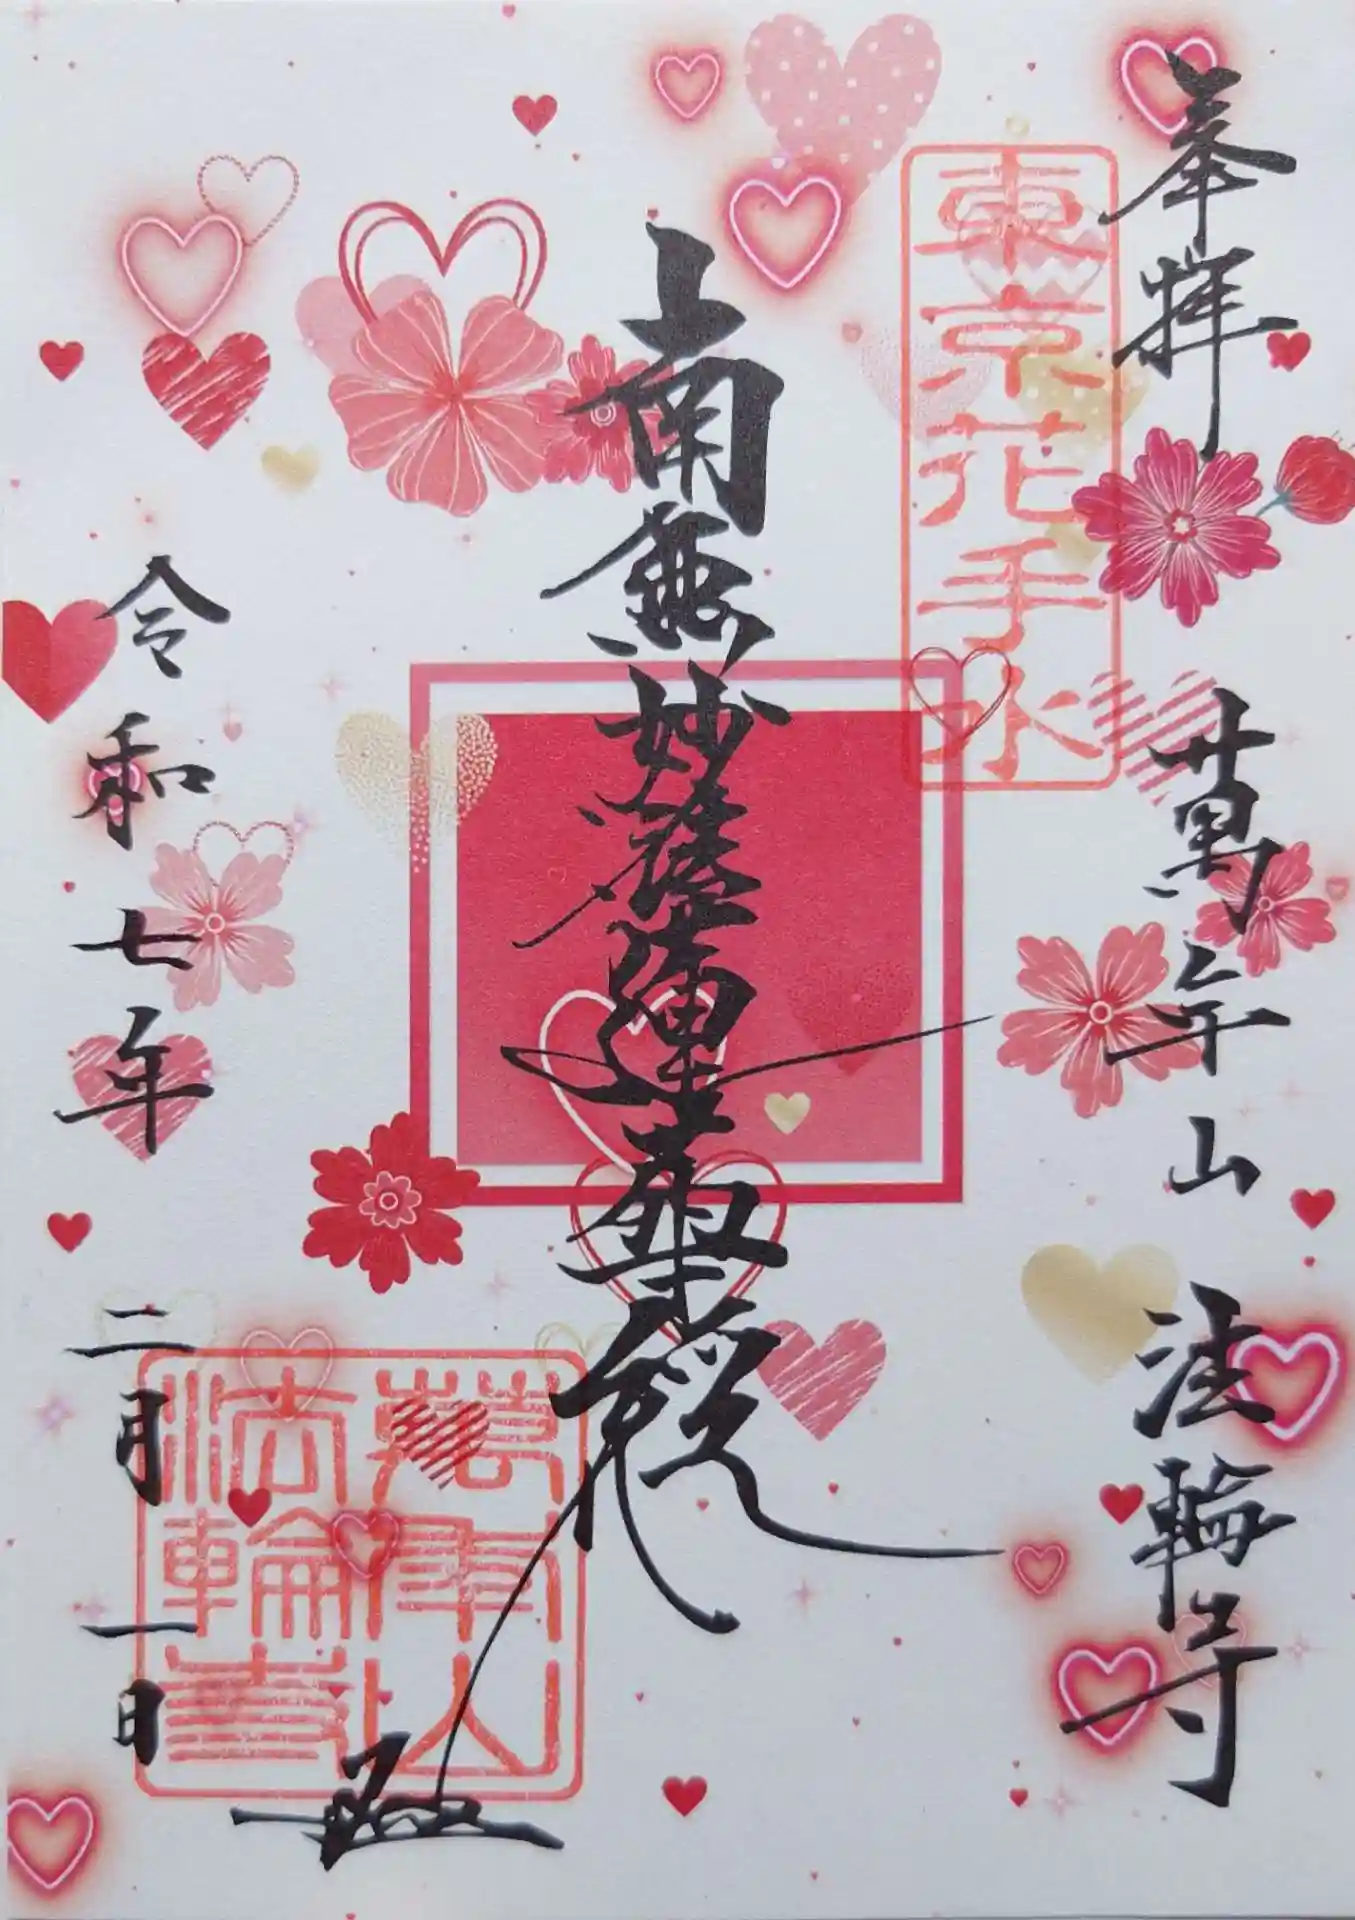 奉拝
萬年山 法輪寺
東京花手水
南無妙法蓮華経
萬年山
法輪寺
令和七年 二月 一日